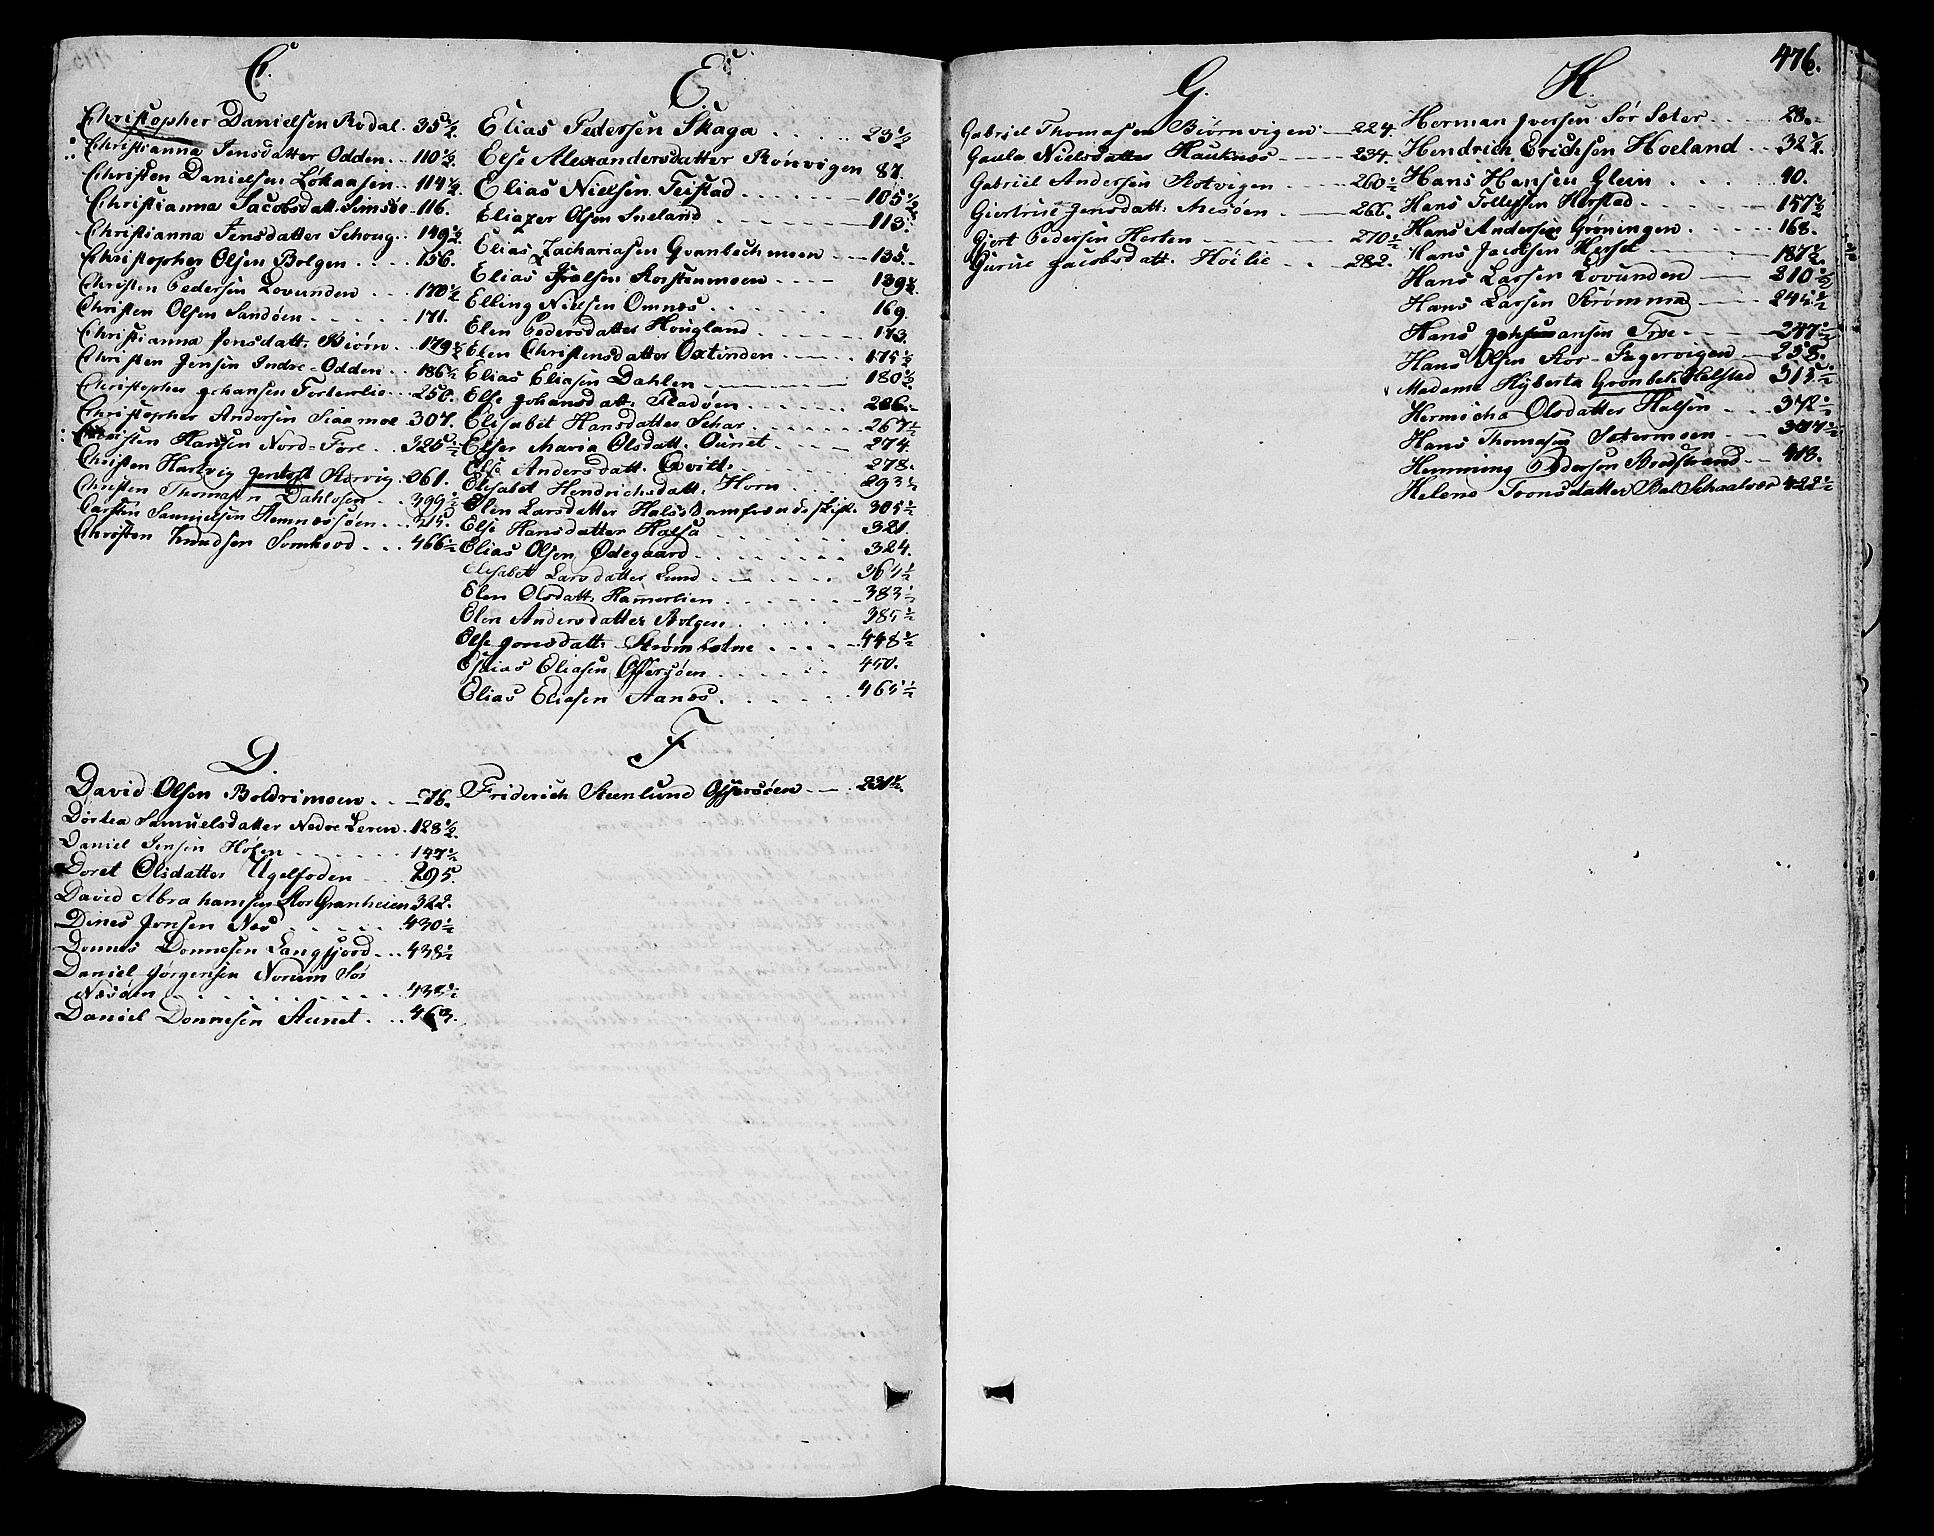 C.
Christopher Danielsen Rodal. 35½.
Christianna Jensdatter Odden. 110½.
Christen Danielsen Lokaasen. 114½
Christianna Jacobsdatt. Simsøe 116.
Christianna Jensdatter Schoug. 149½.
Christopher Olsen Bolgen. 156.
Christen Pedersen Lovunden 170½
Christen Olsen Sandøen 171.
Christianna Jensdatt. Biørn. 179½
Christen Jensen Indre-Odden 186½
Christopher Johansen Forterlie 250.
Christopher Andersen Siaamoe 307.
Christen Hansen Nord-Fore. 325½
Christen Hartvig Jentoft Rorvig. 361.
Christen Thomasen Dahlosen 399½
Carsten Samuelsen Hemnæssøen 315.
Christen Knudsen Somhovd 466½
D.
David Olsen Boldrimoen. 76.
Dortea Samuelsdatter Nedre Leren. 128½.
Daniel Jensen Holen 147½
Doret Olsdatter Ugelfoden 295.
David Abrahamsen Stor Granheien 322.
Dines Jonsen Nes 430½
Donnes Donnesen Langfjord 438½
Daniel Jørgensen Norum Sør
Næsøen 439½
Daniel Donnesen Aunet. 463.
E.
Elias Pedersen Skaga 23½
Else Alexandersdatter Rønvigen 87.
Elias Nielsen Teistad 105½
Eliazer Olsen Sneland 113.
Elias Zachariasen Qvanbechmoen 135.
Elias Joelsen Korstenmoen 139½.
Elling Nielsen Omnæs 169.
Elen Pedersdatter Hougland 173.
Elen Christensdatter Oxtinden 175½
Elias Eliasen Dahlen 180½.
Else Johansdatt. Fladøen 206.
Elisabet Hansdatter Schar 267½
Elser Maria Olsdatt. Ounet 274.
Else Andersdatt. Qvitt. 278.
Elisabet Hendrichsdatt. Horn 293½
Elen Larsdatter Hals Samfrændeskift. 305½
Else Hansdatter Halsa 321.
Elias Olsen Ødegaard 324.
Elisabet Larsdatter Lund 361½
Elen Olsdatt. Hamerlien 383½
Elen Andersdatter Bolgen 385½
Else Jonsdatt. Strømbotne 448½
Elias Eliasen Offersøen 450.
Elias Eliasen Aanæs. 465½
F
Friderich Steenlund Offersøen 231½.
476.
G.
Gabriel Thomasen Biørnvigen 224.
Gaula Nielsdatter Hauknes 234.
Gabriel Andersen Slotvigen 260½
Giertrue Jensdatt. Alesøen 266.
Giert Pedersen Herten 270½
Gurue Jacobsdatt. Høilie 282.
H.
Herman Iversen Sør Sæter 28.
Hendrich Erichsen Hoeland 32½.
Hans Hansen Glein 40.
Hans Tollefsen Herstad 157½
Hans Andersen Grøningen 168.
Hans Jacobsen Herset 187½
Hans Larsen Lovunden 210½
Hans Larsen Strømmæ 245½
Hans Johansen Troe 247½
Hans Olsen Stor-Fagervigen 258.
Madame Hyberta Grønbek Helstad 315½
Hermicha Olsdatter Halsen 372½
Hans Thomasen Sætermoen 377½
Hemming Pedersen Bredstrand 413.
Helene Tronsdatter Bal Schaalvær 422½